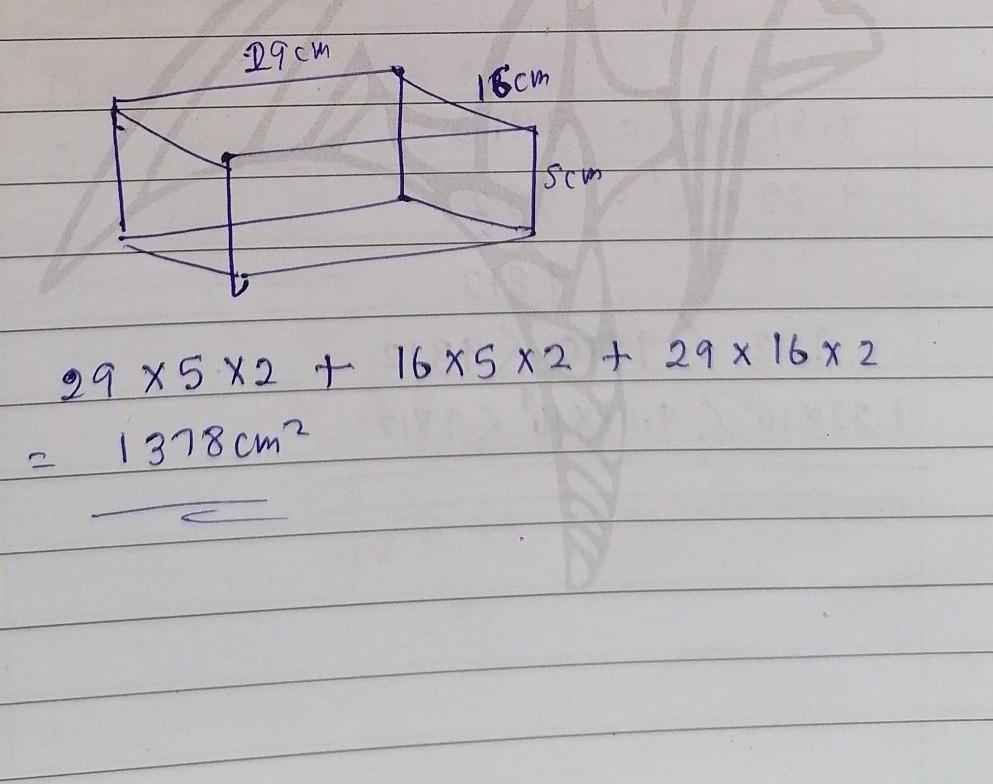 29cm
16cm
5cm
29 × 5 × 2 + 16 × 5 × 2 + 29 × 16 × 2
= 1378cm²